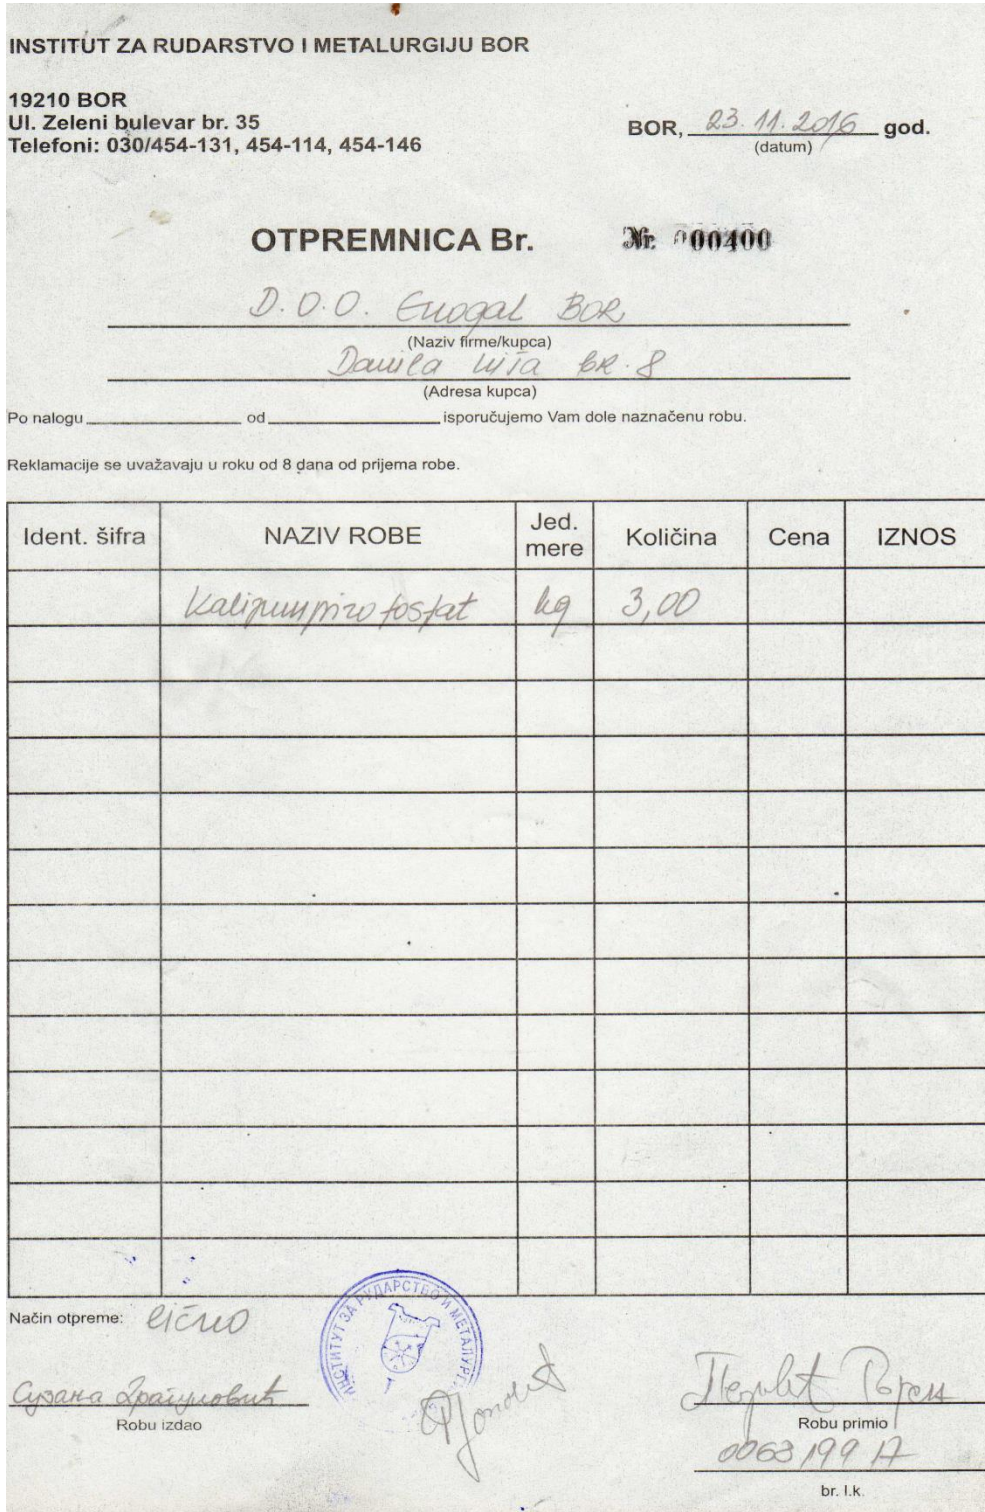 INSTITUT ZA RUDARSTVO I METALURGIJU BOR
19210 BOR
Ul. Zeleni bulevar br. 35
Telefoni: 030/454-131, 454-114, 454-146
BOR, 23.11.2016 god.
(datum)
OTPREMNICA Br. Nr. 000400
D.O.O. Enogal BOR
(Naziv firme/kupca)
Danila br. 8
(Adresa kupca)
Po nalogu od isporučujemo Vam dole naznačenu robu.
Reklamacije se uvažavaju u roku od 8 dana od prijema robe.
Ident. šifra NAZIV ROBE Jed. mere Količina Cena IZNOS
Kalijumpirofosfat kg 3,00
Način otpreme: lično
ИНСТИТУТ ЗА РУДАРСТВО И МЕТАЛУРГ
Сузана
Robu izdao
Robu primio
006319917
br. l.k.